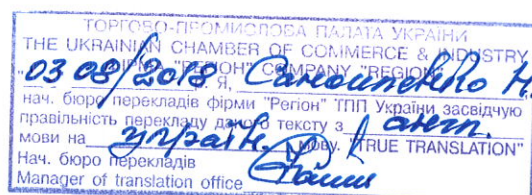 ТОРГОВО-ПРОМИСЛОВА ПАЛАТА УКРАЇНИ
THE UKRAINIAN CHAMBER OF COMMERCE & INDUSTRY
"РЕГІОН" COMPANY "REGION"
"03 08/2018 Я,
нач. бюро перекладів фірми "Регіон" ТПП України засвідчую
правільність перекладу даного тексту з англ.
мови на україн. мову. "TRUE TRANSLATION"
Нач. бюро перекладів
Manager of translation office